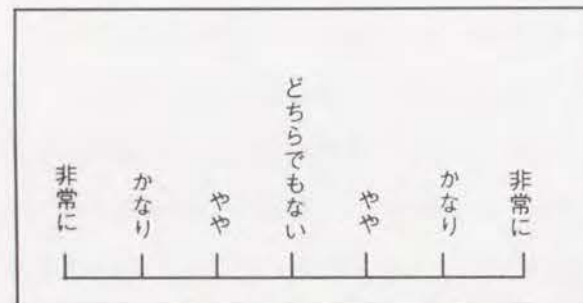 非常に
かなり
やや
どちらでもない
やや
かなり
非常に